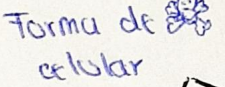 Forma de
celular